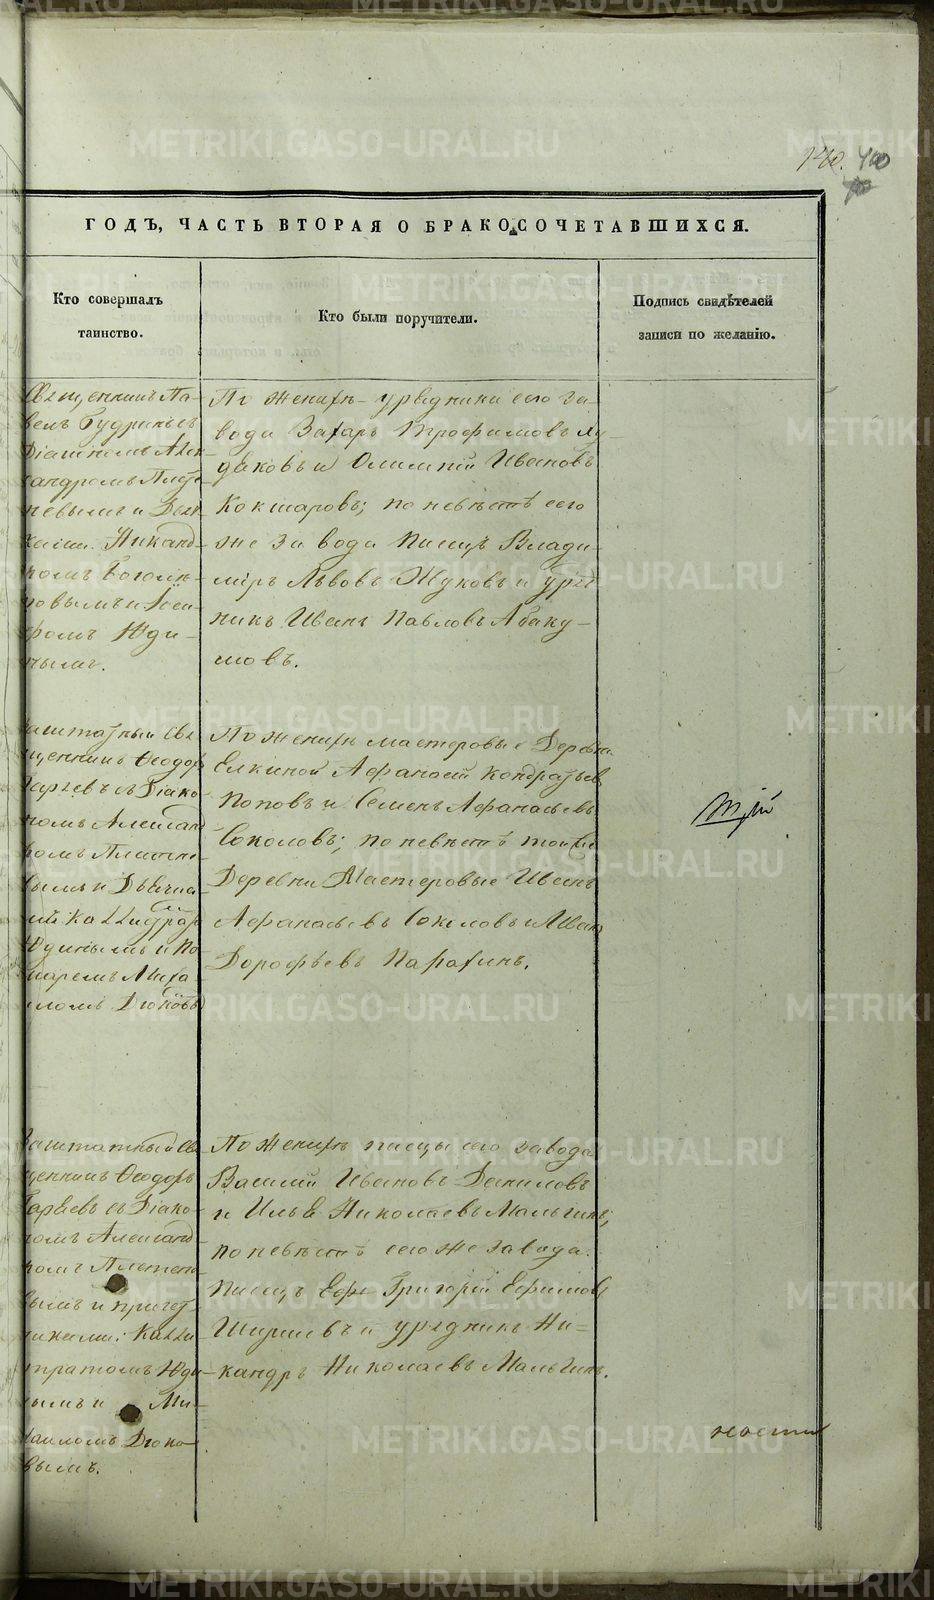 140. 400
ГОДЪ, ЧАСТЬ ВТОРАЯ О БРАКОСОЧЕТАВШИХСЯ.
Кто совершалъ
таинство.
Кто были поручители.
Подпись свидѣтелей
записи по желанію.
Священникъ Па-
велъ
Діакономъ Алек-
сандромъ
невымъ и
Никанд-
ромъ
повымъ и
ромъ Юди-
нымъ.
По женихѣ урядники сего за-
вода Захаръ Трофимовъ Ху-
дяковъ и Олимпій Ивановъ
Кокшаровъ; по невѣстѣ сего
же завода писецъ Влади-
міръ Львовъ Жуковъ и уряд
никъ Иванъ Павловъ Абаку-
мовъ.
Заштатный Свя
щенникъ Ѳеодоръ
съ Діако-
номъ Александ
ромъ
вымъ и
Юдинымъ и По
номаремъ Миха
иломъ Дюковы
По женихѣ мастеровые Деревни
Елкиной Афанасій Кондратьев
Поповъ и Семенъ Афанасьевъ
Соколовъ; по невѣстѣ той же
Деревни Мастеровые Иванъ
Афанасьевъ Соколовъ и Иванъ
Дорофѣевъ Парахинъ.
Заштатный Свя
щенникъ Ѳеодоръ
съ Діако-
номъ Александ
ромъ
вымъ и причет
никами: Калли
стратомъ Юди
нымъ и Ми-
хаиломъ Дюко
вымъ.
По женихѣ писцы сего завода
Василій Ивановъ Даниловъ
и Илья Николаевъ Мальгинъ;
по невѣстѣ сего же завода
писецъ Григорій Ефимовъ
Ширяевъ и урядникъ Ни-
кандръ Николаевъ Мальгинъ.
METRIKI.GASO-URAL.RU